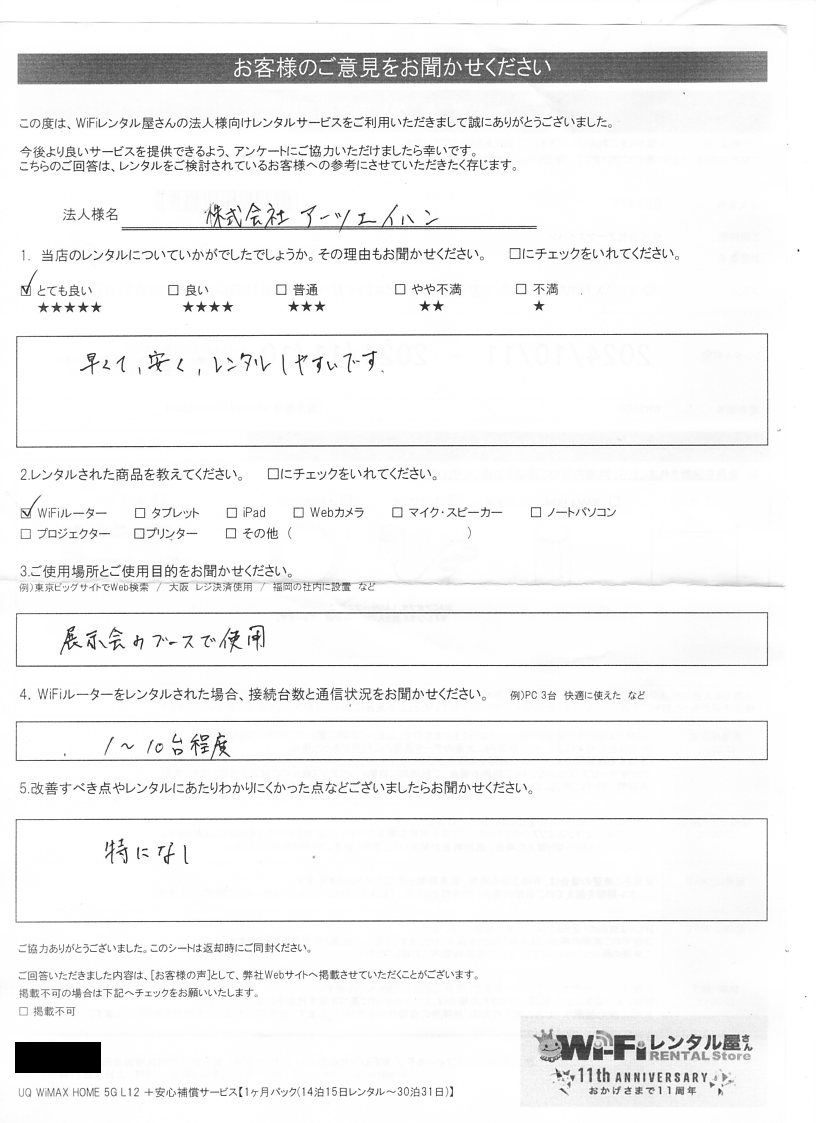 お客様のご意見をお聞かせください
この度は、WiFiレンタル屋さんの法人様向けレンタルサービスをご利用いただきまして誠にありがとうございました。
今後より良いサービスを提供できるよう、アンケートにご協力いただけましたら幸いです。
こちらのご回答は、レンタルをご検討されているお客様への参考にさせていただきたく存じます。
法人様名 株式会社アーツエイハン
1. 当店のレンタルについていかがでしたでしょうか。その理由もお聞かせください。 □にチェックをいれてください。
☑ とても良い □ 良い □ 普通 □ やや不満 □ 不満
★★★★★ ★★★★ ★★★ ★★ ★
早くて、安く、レンタルしやすいです.
2.レンタルされた商品を教えてください。 □にチェックをいれてください。
☑ WiFiルーター □ タブレット □ iPad □ Webカメラ □ マイク・スピーカー □ ノートパソコン
□ プロジェクター □プリンター □ その他 ( )
3.ご使用場所とご使用目的をお聞かせください。
例)東京ビッグサイトでWeb検索 / 大阪 レジ決済使用 / 福岡の社内に設置 など
展示会のブースで使用
4. WiFiルーターをレンタルされた場合、接続台数と通信状況をお聞かせください。 例)PC 3台 快適に使えた など
1～10台程度
5.改善すべき点やレンタルにあたりわかりにくかった点などございましたらお聞かせください。
特になし
ご協力ありがとうございました。このシートは返却時にご同封ください。
ご回答いただきました内容は、[お客様の声]として、弊社Webサイトへ掲載させていただくことがございます。
掲載不可の場合は下記へチェックをお願いいたします。
□ 掲載不可
Wi-Fiレンタル屋さん
RENTAL Store
11th ANNIVERSARY
おかげさまで11周年
UQ WiMAX HOME 5G L12 ＋安心補償サービス【1ヶ月パック(14泊15日レンタル～30泊31日)】